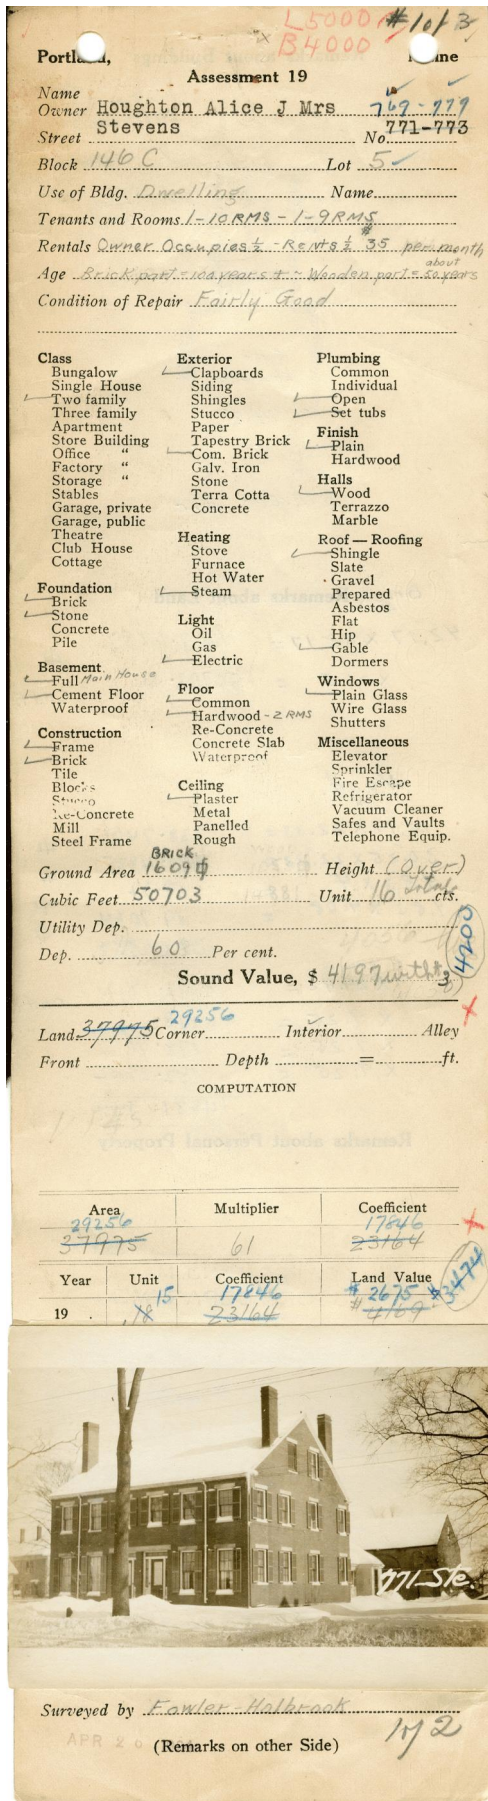 L5000 #1 of 3
B4000
Portland, Maine
Assessment 19
Name
Owner Houghton Alice J Mrs 769-779
Street Stevens No. 771-773
Block 146 C Lot 5
Use of Bldg. Dwelling Name
Tenants and Rooms 1-10 RMS - 1-9 RMS
Rentals Owner Occupies ½ - Rents ½ $35 per month
Age Brick part = 100 years ± - Wooden part = about 50 years
Condition of Repair Fairly Good
Class
Bungalow
Single House
Two family
Three family
Apartment
Store Building
Office "
Factory "
Storage "
Stables
Garage, private
Garage, public
Theatre
Club House
Cottage
Foundation
Brick
Stone
Concrete
Pile
Basement
Full Main House
Cement Floor
Waterproof
Construction
Frame
Brick
Tile
Blocks
Stucco
Re-Concrete
Mill
Steel Frame
Exterior
Clapboards
Siding
Shingles
Stucco
Paper
Tapestry Brick
Com. Brick
Galv. Iron
Stone
Terra Cotta
Concrete
Heating
Stove
Furnace
Hot Water
Steam
Light
Oil
Gas
Electric
Floor
Common
Hardwood - 2 RMS
Re-Concrete
Concrete Slab
Waterproof
Ceiling
Plaster
Metal
Panelled
Rough
Plumbing
Common
Individual
Open
Set tubs
Finish
Plain
Hardwood
Halls
Wood
Terrazzo
Marble
Roof — Roofing
Shingle
Slate
Gravel
Prepared
Asbestos
Flat
Hip
Gable
Dormers
Windows
Plain Glass
Wire Glass
Shutters
Miscellaneous
Elevator
Sprinkler
Fire Escape
Refrigerator
Vacuum Cleaner
Safes and Vaults
Telephone Equip.
BRICK
Ground Area 1609 Height (Over)
Cubic Feet 50703 Unit 16 cts. Total
Utility Dep.
Dep. 60 Per cent.
4200
Sound Value, $ 4197 with #3
29256
Land 37975 Corner Interior Alley
Front Depth = ft.
COMPUTATION
Area Multiplier Coefficient
29256 17846
37975 61 23164
Year Unit Coefficient Land Value
15 17846 $2675 $3474
19 .18 23164 $4169
771 Ste.
Surveyed by Fowler - Holbrook
APR 20
1 of 2
(Remarks on other Side)